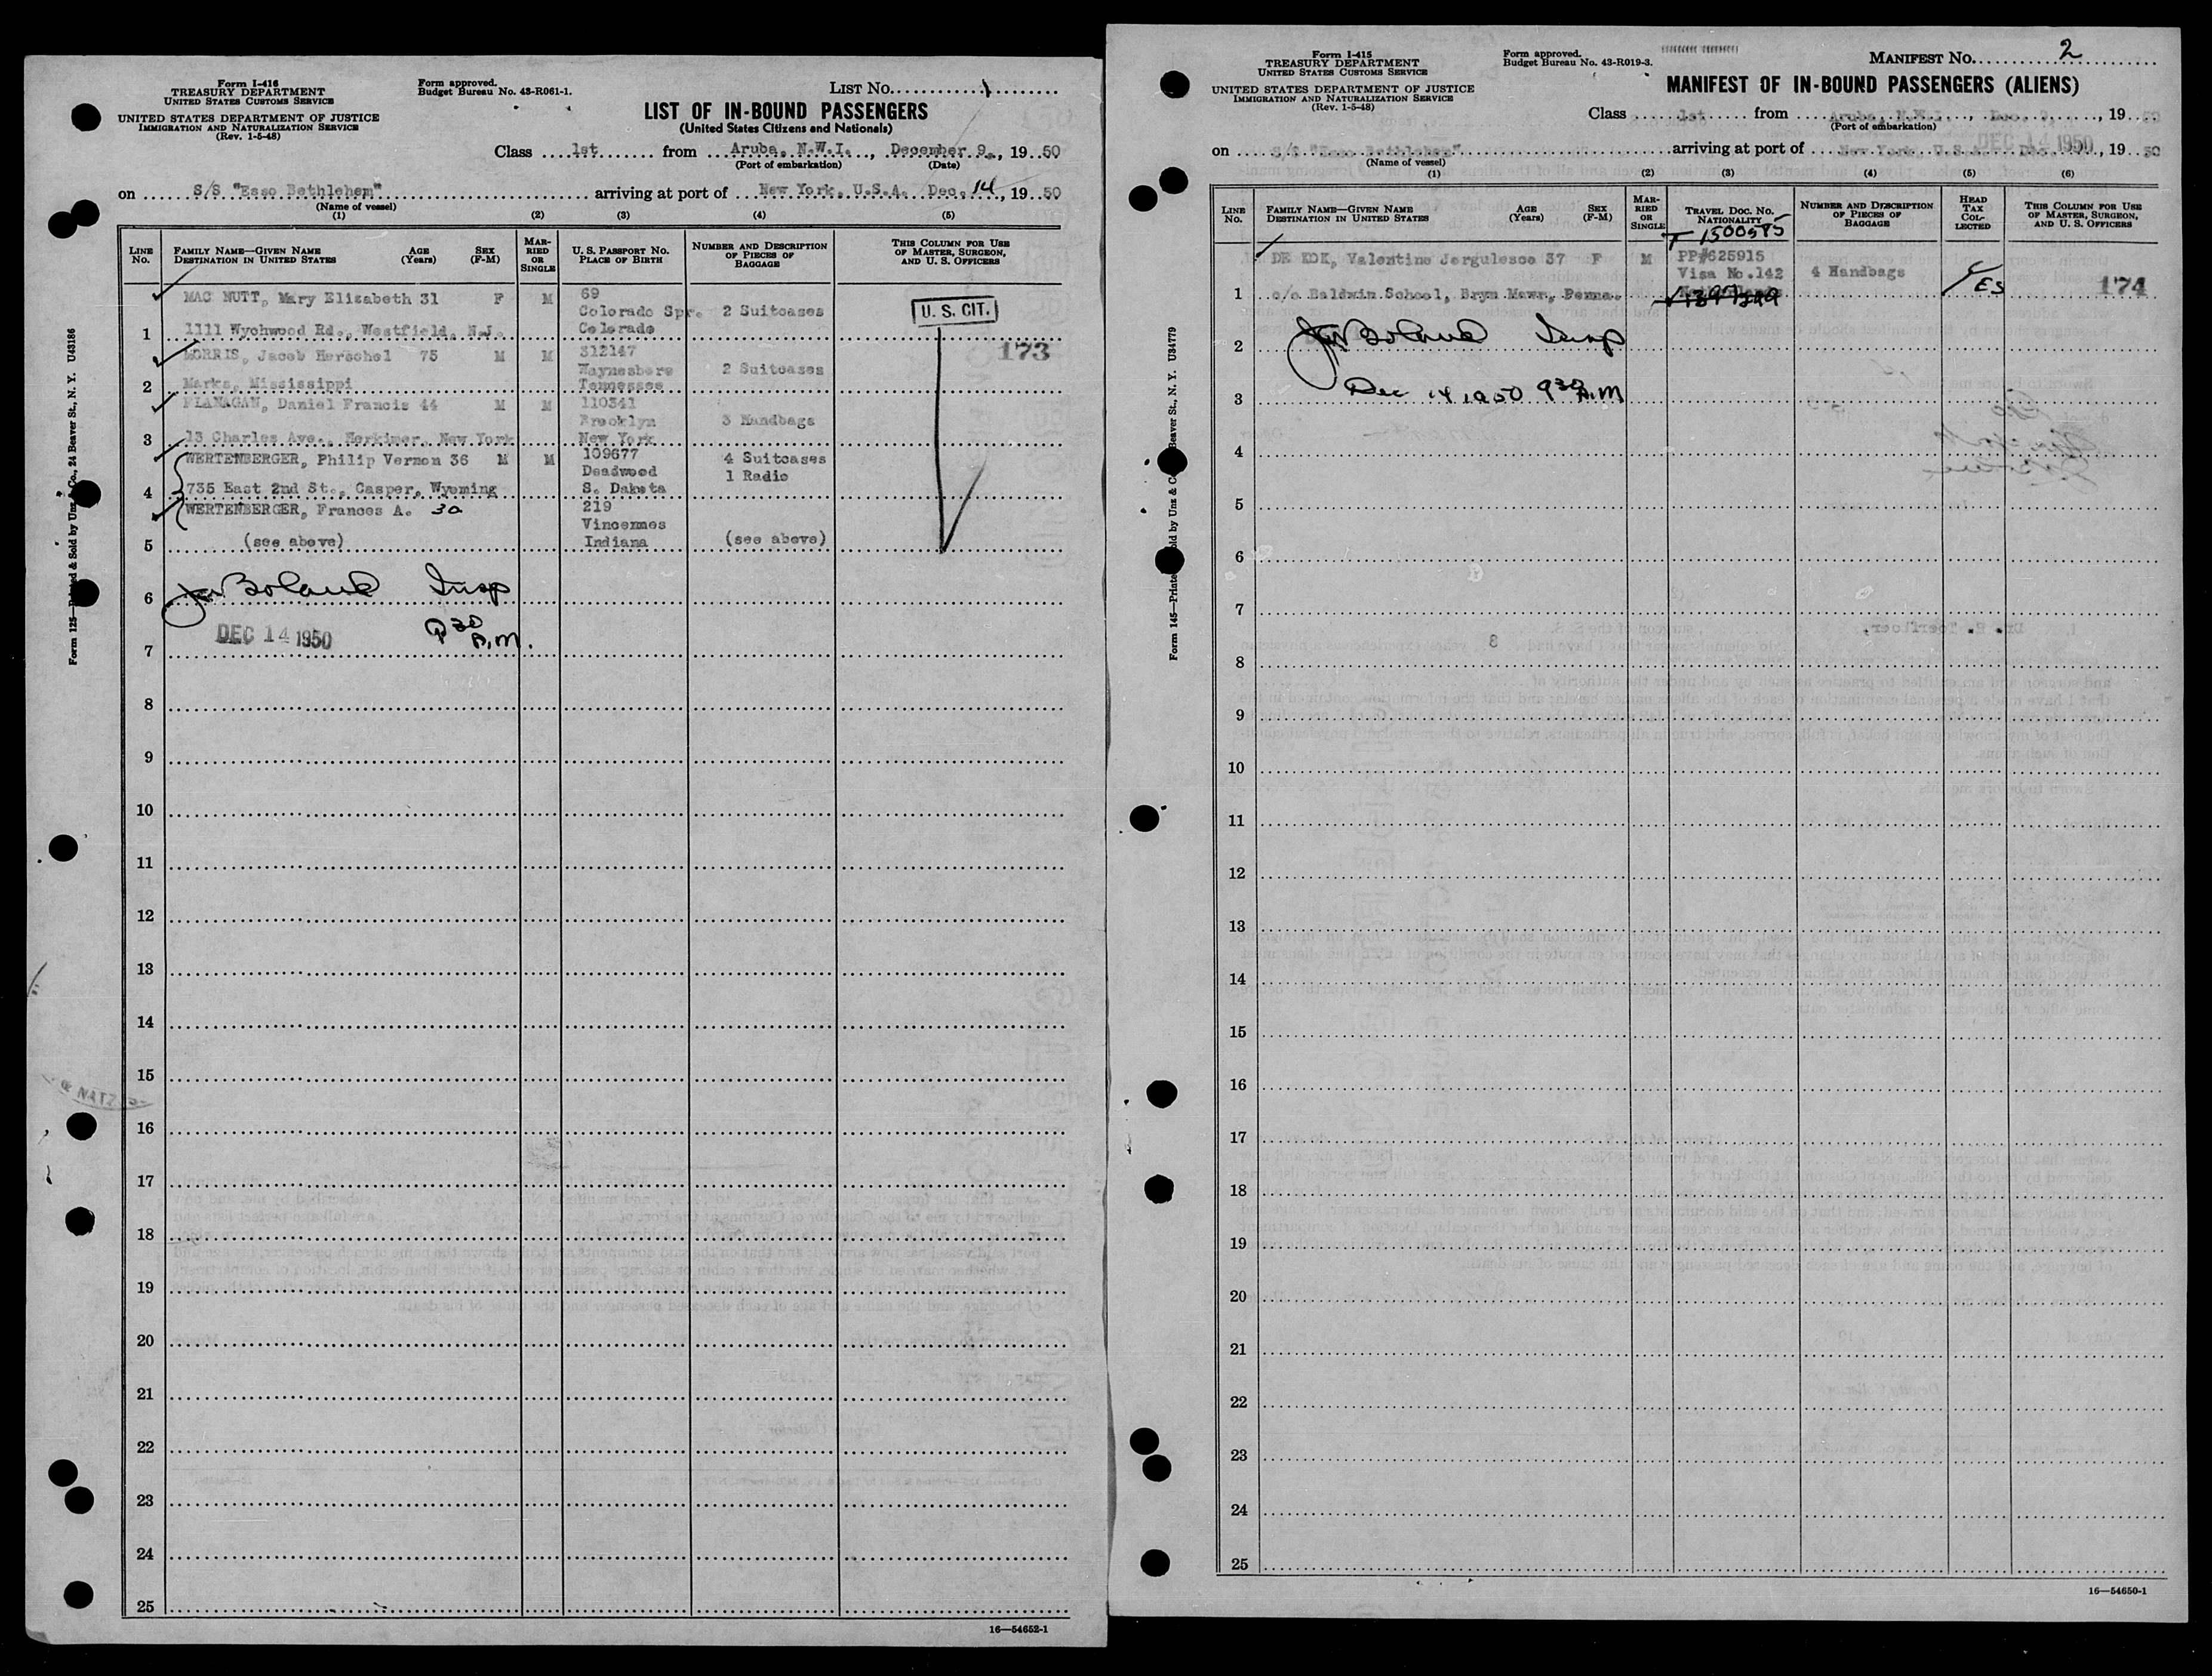 Form I-416
TREASURY DEPARTMENT
UNITED STATES CUSTOMS SERVICE
UNITED STATES DEPARTMENT OF JUSTICE
IMMIGRATION AND NATURALIZATION SERVICE
(Rev. 1-5-48)
Form approved.
Budget Bureau No. 43-R061-1.
LIST No. 1
LIST OF IN-BOUND PASSENGERS
(United States Citizens and Nationals)
Class 1st from Aruba, N.W.I., December 9, 19 50
(Port of embarkation) (Date)
on S/S "Esso Bethlehem" arriving at port of New York, U.S.A. Dec. 14, 19 50
(Name of vessel)
(1) (2) (3) (4) (5)
LINE No.
FAMILY NAME—GIVEN NAME
DESTINATION IN UNITED STATES
AGE (Years)
SEX (F-M)
MARRIED OR SINGLE
U. S. PASSPORT NO.
PLACE OF BIRTH
NUMBER AND DESCRIPTION OF PIECES OF BAGGAGE
THIS COLUMN FOR USE OF MASTER, SURGEON, AND U. S. OFFICERS
MAC NUTT, Mary Elizabeth 31 F M 69
Colorado Spr. 2 Suitcases U. S. CIT.
1 1111 Wychwood Rd., Westfield, N.J. Colorado
MORRIS, Jacob Herschel 75 M M 312147 173
Waynesboro 2 Suitcases
2 Marks, Mississippi Tennessee
FLANAGAN, Daniel Francis 44 M M 110341
Brooklyn 3 Handbags
3 13 Charles Ave., Herkimer, New York New York
WERTENBERGER, Philip Vernon 36 M M 109677 4 Suitcases
Deadwood 1 Radio
4 735 East 2nd St., Casper, Wyoming S. Dakota
WERTENBERGER, Frances A. 30 219
Vincennes
5 (see above) Indiana (see above)
6 Boland Insp
7 DEC 14 1950 9 30 A.M.
8
9
10
11
12
13
14
15
16
17
18
19
20
21
22
23
24
25
16—54652-1
Form 125—Printed & Sold by Unz & Co., 24 Beaver St., N. Y. U43186
& NATZ
Form I-415
TREASURY DEPARTMENT
UNITED STATES CUSTOMS SERVICE
UNITED STATES DEPARTMENT OF JUSTICE
IMMIGRATION AND NATURALIZATION SERVICE
(Rev. 1-5-48)
Form approved.
Budget Bureau No. 43-R019-3.
MANIFEST No. 2
MANIFEST OF IN-BOUND PASSENGERS (ALIENS)
Class 1st from Aruba, N.W.I., Dec. 9, 19 50
(Port of embarkation)
DEC 14 1950
on S/S "Esso Bethlehem" arriving at port of New York, U.S.A. Dec. 19 50
(Name of vessel)
(1) (2) (3) (4) (5) (6)
LINE No.
FAMILY NAME—GIVEN NAME
DESTINATION IN UNITED STATES
AGE (Years)
SEX (F-M)
MARRIED OR SINGLE
TRAVEL DOC. NO.
NATIONALITY
NUMBER AND DESCRIPTION OF PIECES OF BAGGAGE
HEAD TAX COLLECTED
THIS COLUMN FOR USE OF MASTER, SURGEON, AND U. S. OFFICERS
T 1500585
DE KOK, Valentine Jergulesco 37 F M PP#625915
Visa No.142 4 Handbags
1 c/o Baldwin School, Bryn Mawr, Penna. Netherlands YES 174
2 Boland Insp
3 Dec 14 1950 9 30 A.M
4
5
6
7
8
9
10
11
12
13
14
15
16
17
18
19
20
21
22
23
24
25
16—54650-1